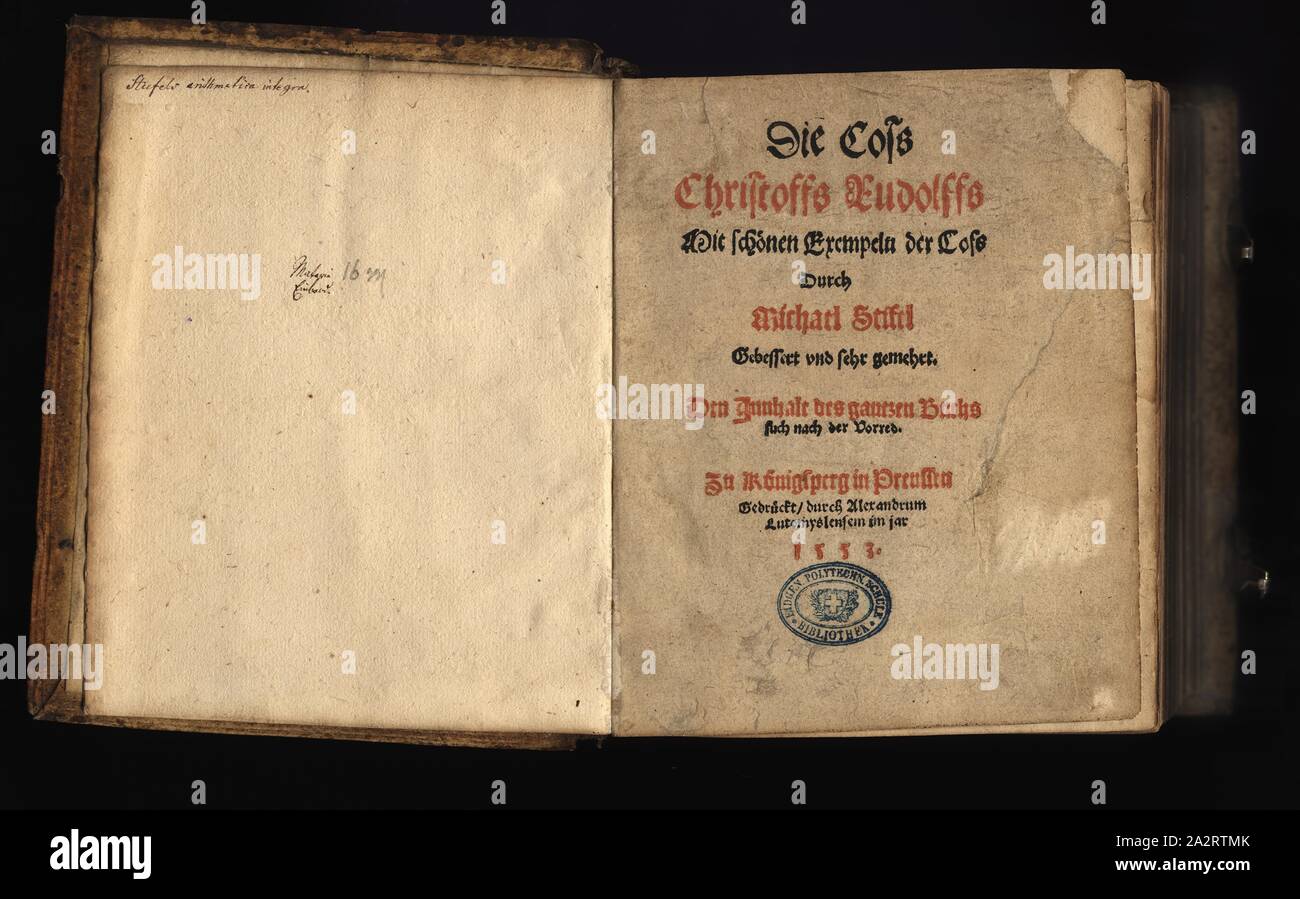 Stiefels arithmetica integra.
Die Coss
Christoffs Rudolffs
Mit schönen Exempeln der Coss
Durch
Michael Stifel
Gebessert vnd sehr gemehrt.
Den Innhalt des gantzen Buchs
such nach der Vorred.
Zu Königsperg in Preussen
Gedrückt / durch Alexandrum
Lutomyslensem im jar
1553.
EIDGEN. POLYTECHN. SCHULE
BIBLIOTHEK
alamy
alamy
alamy
Image ID: 2A2RTMK
www.alamy.com